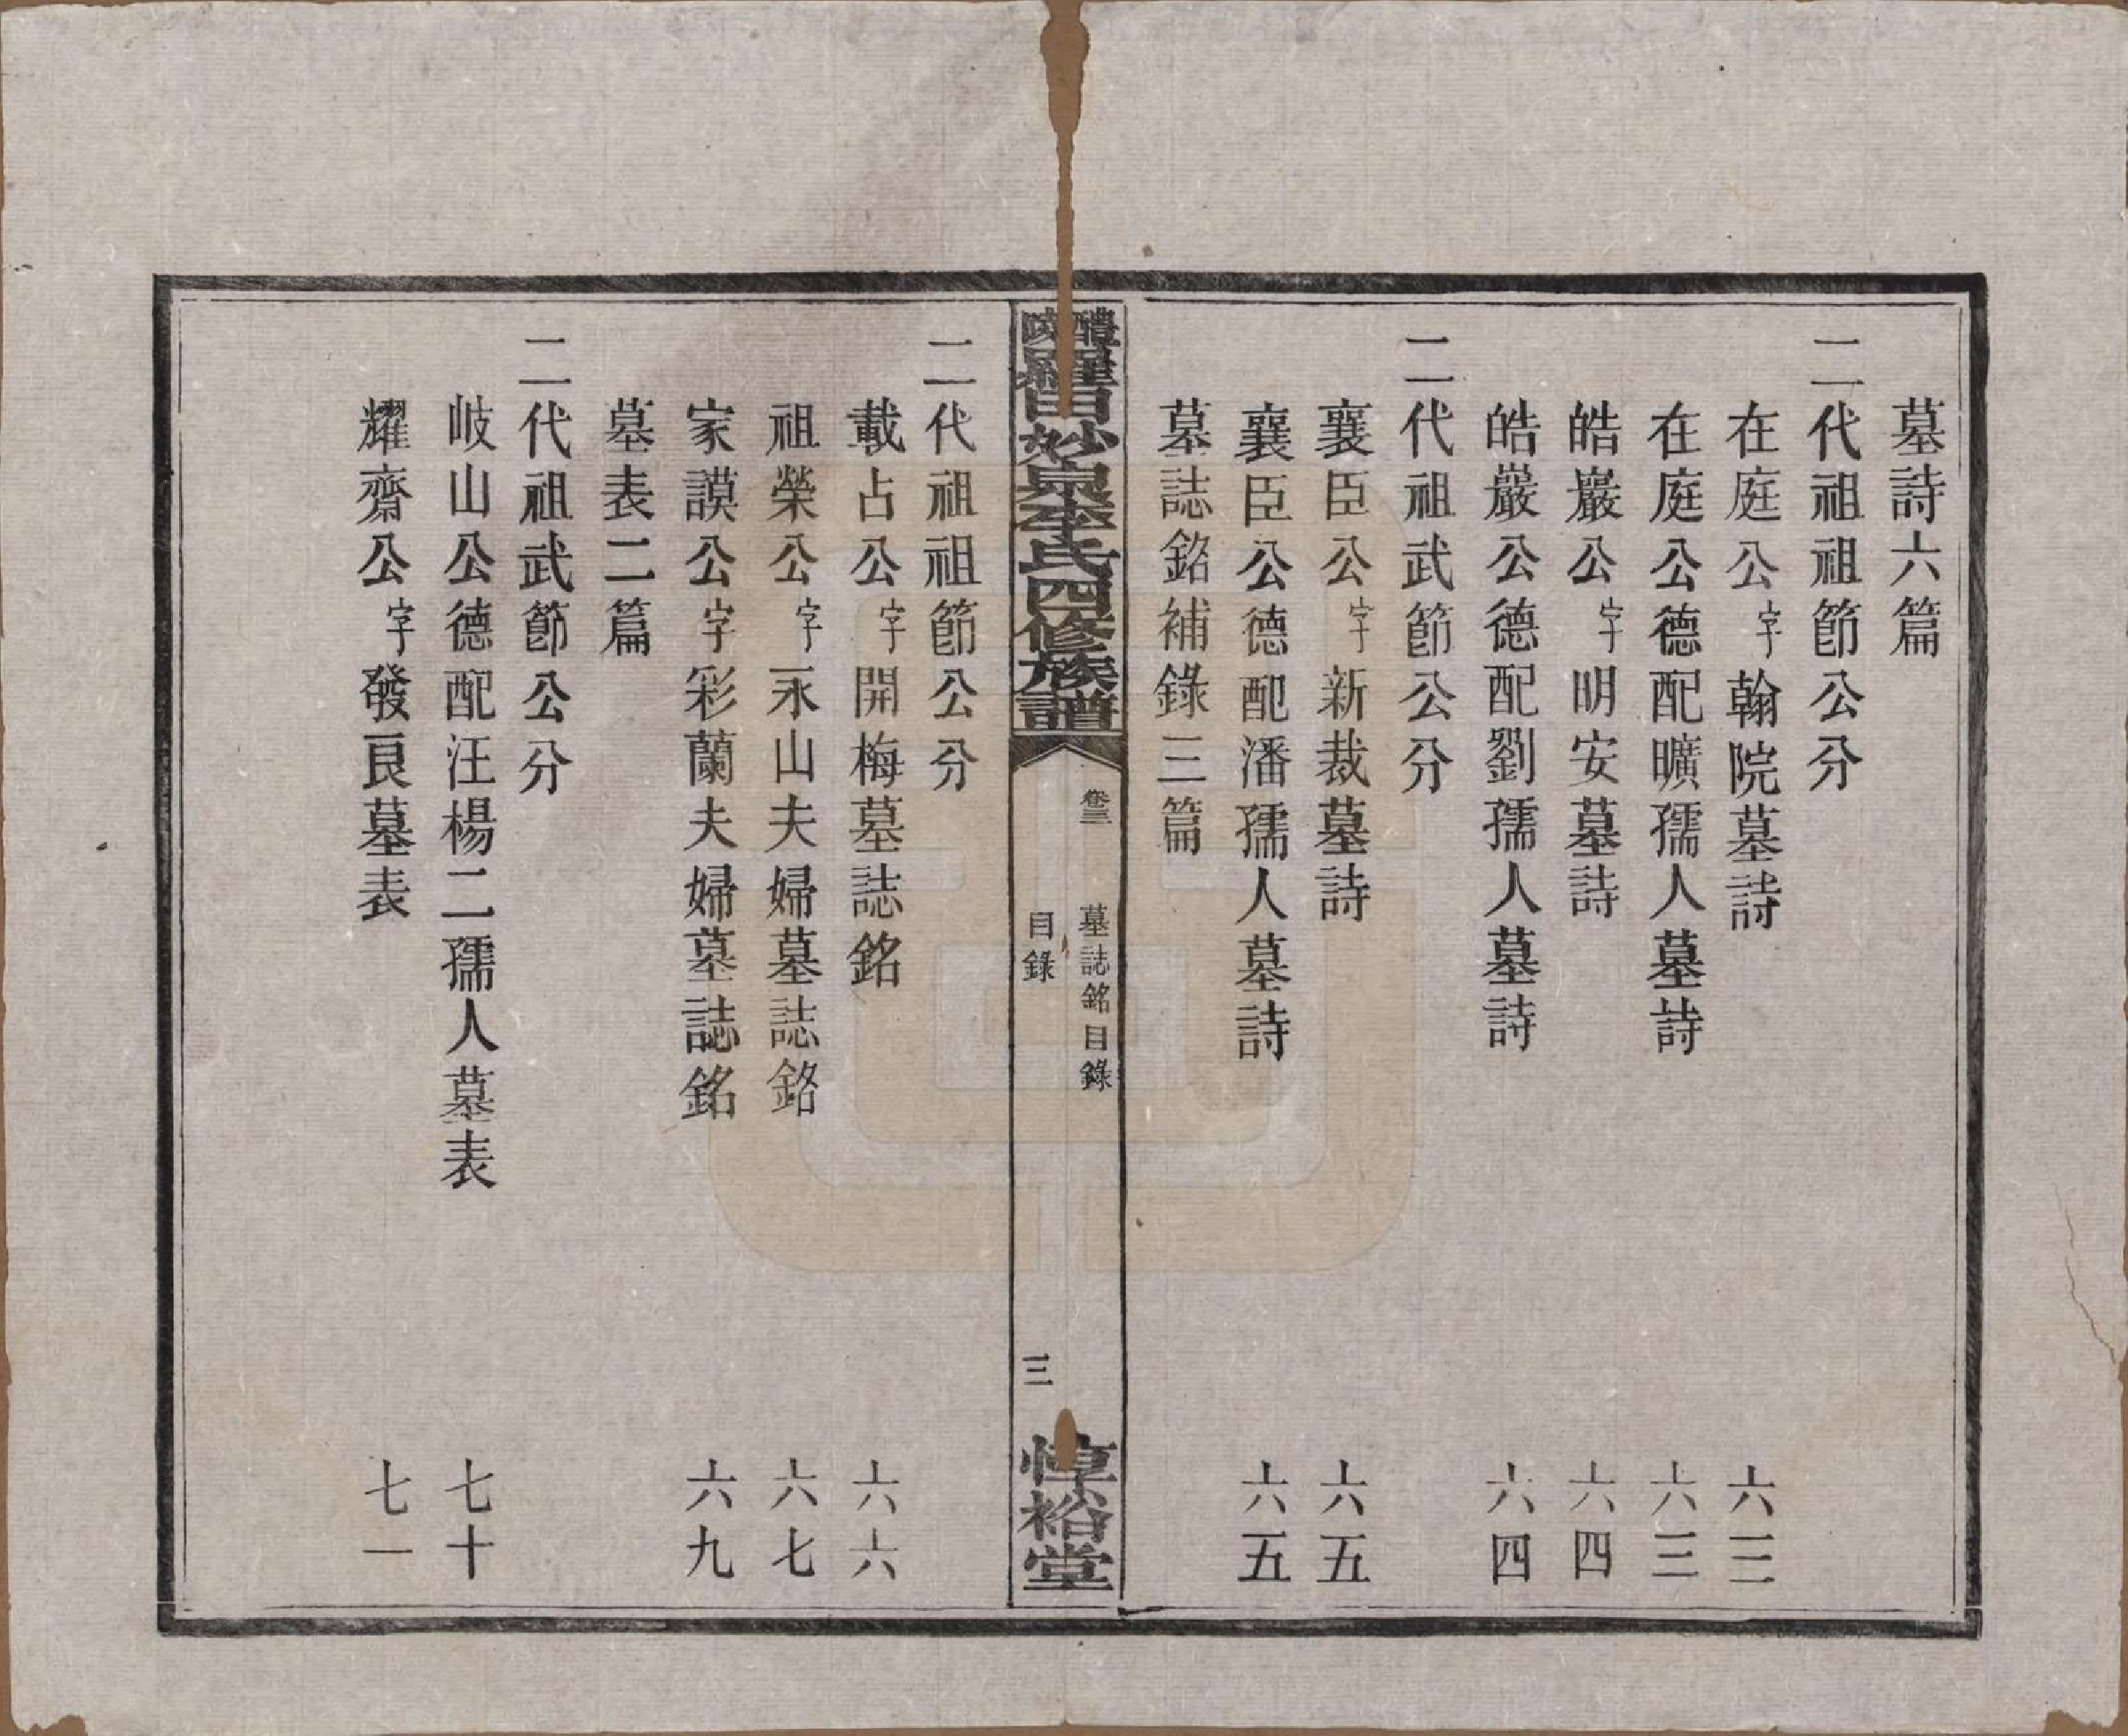 墓詩六篇
二代祖祖節公分
在庭公字翰院墓詩 六三
在庭公德配曠孺人墓詩 六三
皓巖公字明安墓詩 六四
皓巖公德配劉孺人墓詩 六四
二代祖武節公分
襄臣公字新裁墓詩 六五
襄臣公德配潘孺人墓詩 六五
墓誌銘補錄三篇
醴陵羅田妙泉李氏四修族譜
卷三 墓誌銘目錄
目錄 三
惇裕堂
二代祖祖節公分
載占公字開梅墓誌銘 六六
祖榮公字永山夫婦墓誌銘 六七
家謨公字彩蘭夫婦墓誌銘 六九
墓表二篇
二代祖武節公分
岐山公德配汪楊二孺人墓表 七十
耀齋公字發良墓表 七一